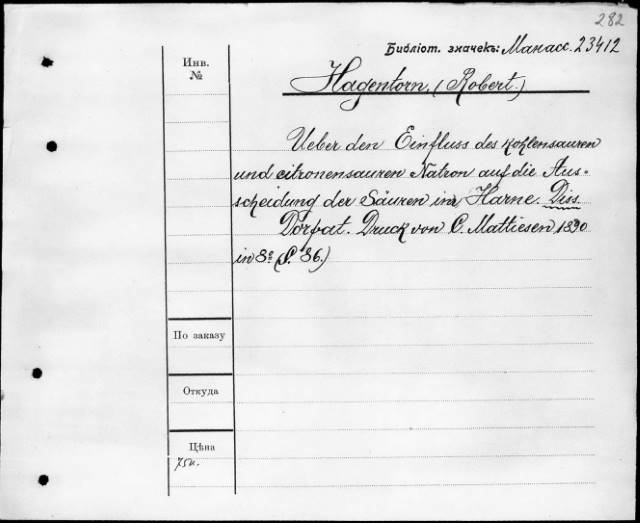 282
Библіот. значекъ: Манасс. 23412
Инв.
№
Hagentorn, (Robert.)
Ueber den Einfluss des kohlensauren
und citronensauren Natron auf die Aus-
scheidung der Säuren im Harne. Diss.
Dorpat. Druck von C. Mattiesen, 1890
in 8º (S. 36.)
По заказу
Откуда
Цѣна
75к.